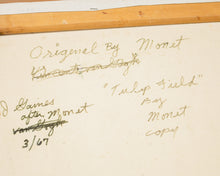 Original By Monet
Vincent van Gogh
d Games
after Monet
van Gogh
3/67
"Tulip Field"
By
Monet
copy